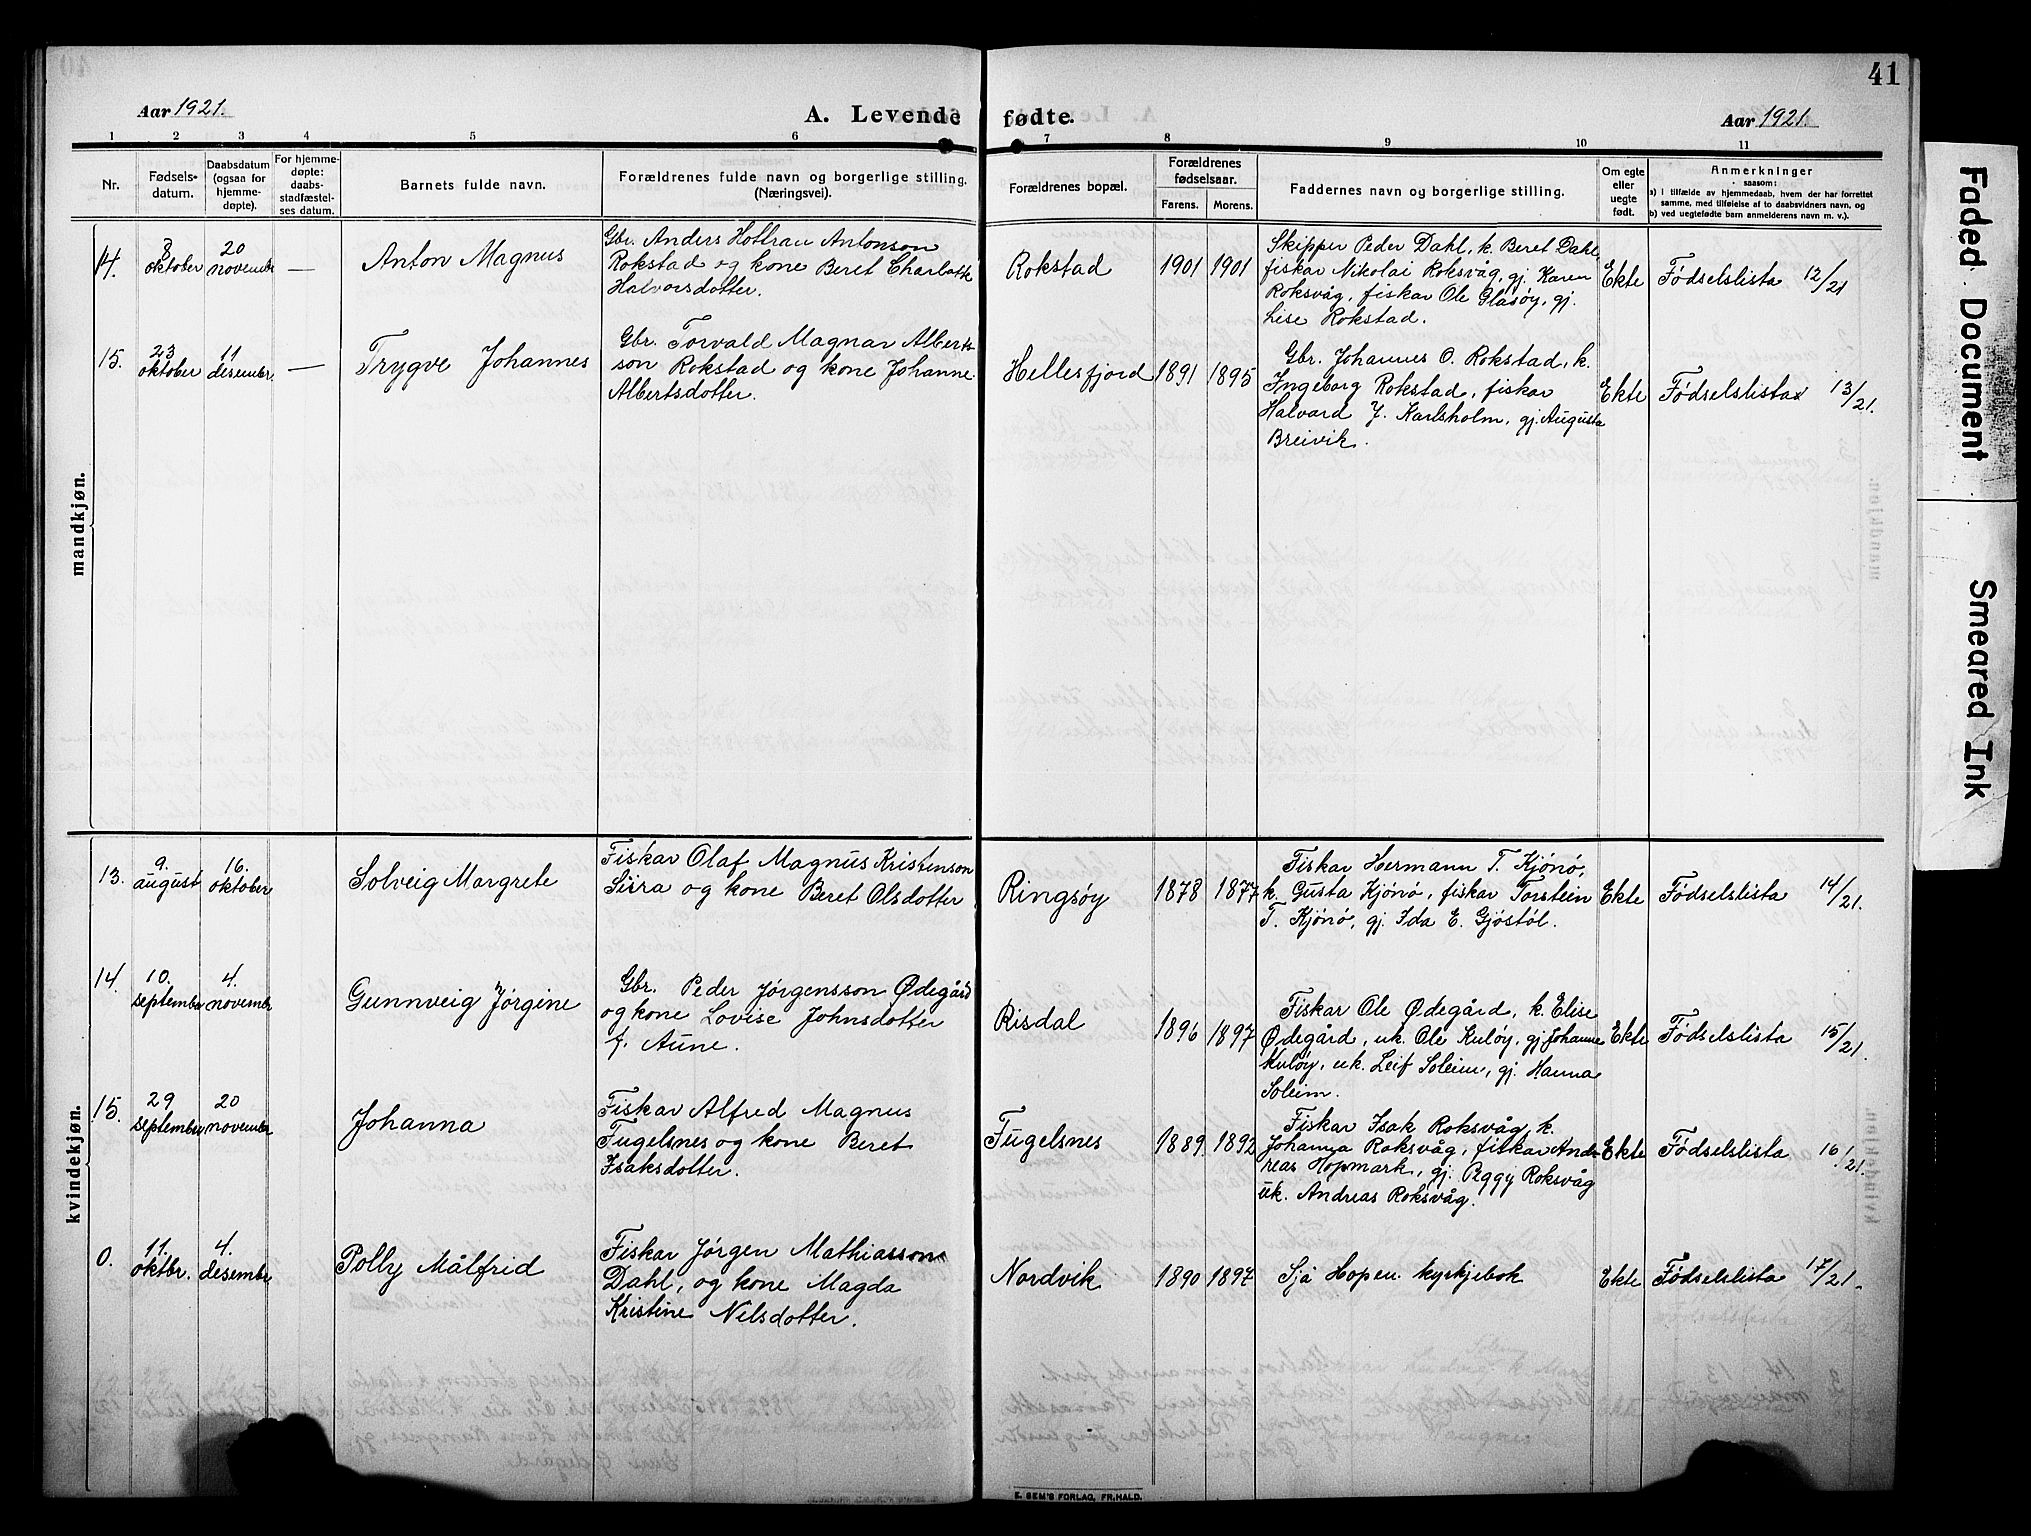 41
Aar 1921.
A. Levende fødte.
Aar 1921.
1 2 3 4 5 6 7 8 9 10 11
Nr.
Fødsels-
datum.
Daabsdatum
(ogsaa for
hjemme-
døpte).
For hjemme-
døpte:
daabs-
stadfæstel-
ses datum.
Barnets fulde navn.
Forældrenes fulde navn og borgerlige stilling.
(Næringsvei).
Forældrenes bopæl.
Forældrenes
fødselsaar.
Farens. Morens.
Faddernes navn og borgerlige stilling.
Om egte
eller
uegte
født.
Anmerkninger
saasom:
a) i tilfælde av hjemmedaab, hvem der har forrettet
samme, med tilføielse af to daabsvidners navn, og
b) ved uegtefødte barn anmelderens navn m. v.).
mandkjøn.
14.
8
oktober
20
novembr
—
Anton Magnus
Gbr. Anders Hottran Antonson
Rokstad og kone Beret Charlotte
Halvorsdotter.
Rokstad
1901 1901
Skipper Peder Dahl, k. Beret Dahl,
fiskar Nikolai Roksvåg, gj. Karen
Roksvåg, fiskar Ole Glasøy, gj.
Lise Rokstad.
Ekte
Fødselslista 12/21
15.
23
oktober
11
desembr.
—
Trygve Johannes
Gbr. Torvald Magnar Alberts-
son Rokstad og kone Johanne
Albertsdotter.
Hellesfjord
1891 1895
Gbr. Johannes O. Rokstad, k.
Ingeborg Rokstad, fiskar
Halvard J. Karlsholm, gj. Augusta
Breivik.
Ekte
Fødselslista 13/21.
kvindekjøn.
13.
9.
august
16.
oktober
Solveig Margrete
Fiskar Olaf Magnus Kristenson
Sirra og kone Beret Olsdotter
Ringsøy
1878 1877
Fiskar Hermann T. Kjönö,
k. Gusta Kjönö, fiskar Torstein
T. Kjönö, gj. Ida E. Gjöstöl.
Ekte
Fødselslista 14/21.
14.
10.
septembr
4.
novembr
Gunnveig Jørgine
Gbr. Peder Jørgensson Ødegård
og kone Lovise Johnsdotter
f. Aune.
Risdal
1896 1897
Fiskar Ole Ødegård, k. Elise
Ødegård, uk. Ole Kuløy, gj. Johanne
Kuløy, uk. Leif Soleim, gj. Hanna
Soleim.
Ekte
Fødselslista 15/21.
15.
29
septembr
20
novembr
Johanna
Fiskar Alfred Magnus
Fugelsnes og kone Beret
Isaksdotter.
Fugelsnes
1889 1892
Fiskar Isak Roksvåg, k.
Johanna Roksvåg, fiskar And-
reas Hopmark, gj. Peggy Roksvåg
uk. Andreas Roksvåg.
Ekte
Fødselslista 16/21.
0.
11.
oktbr.
4.
desembr
Polly Målfrid
Fiskar Jørgen Mathiasson
Dahl, og kone Magda
Kristine Nilsdotter.
Nordvik
1890 1897
Sjå Hopen kyrkjebok
Ekte
Fødselslista 17/21.
E. SEM'S FORLAG, FR.HALD.
Faded Document
Smeared Ink